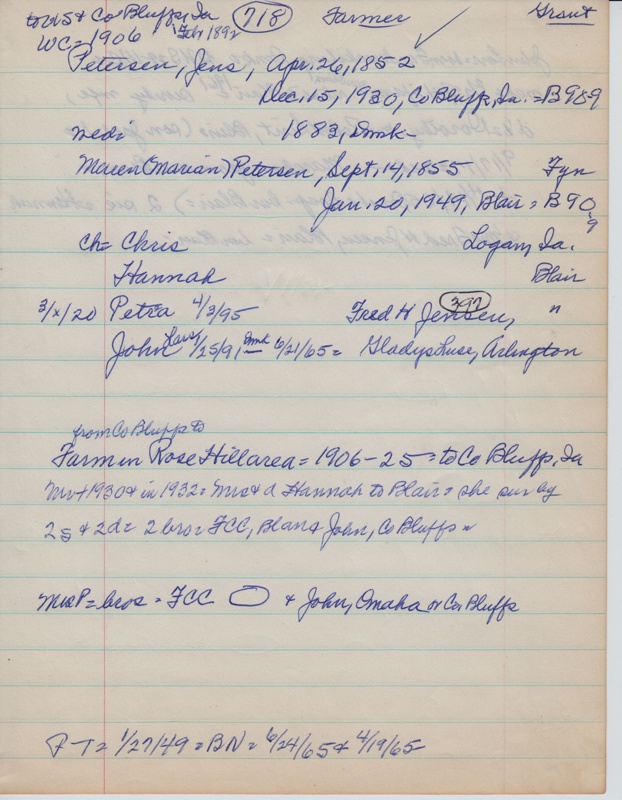 to US & Co Bluffs, Ia 718 Farmer Grant
WC = 1906 Feb 1892
Petersen, Jens, Apr. 26, 1852
Dec. 15, 1930, Co Bluffs, Ia. = B 959
1882, Dmk -
Maren (Marian) Petersen, Sept. 14, 1855 Fyn
Jan. 20, 1949, Blair = B 90
9
Ch = Chris Logan, Ia.
Hannah Blair
3/x/20 Petra 4/3/95 Fred H Jensen, 397 "
John Lars 1/25/91 - Dmk 6/21/65 = Gladys Luse, Arlington
from Co Bluffs to
Farm in Rose Hill area = 1906 - 25 = to Co Bluffs, Ia
Mr + 1930 & in 1932 = Mrs & d Hannah to Blair = she sur by
2 s & 2 d = 2 bro = FCC, Blair & John, Co Bluffs
Mrs P = bros = FCC & John, Omaha or Co Bluffs
P - T = 1/27/49 = BN = 6/24/65 & 4/19/65